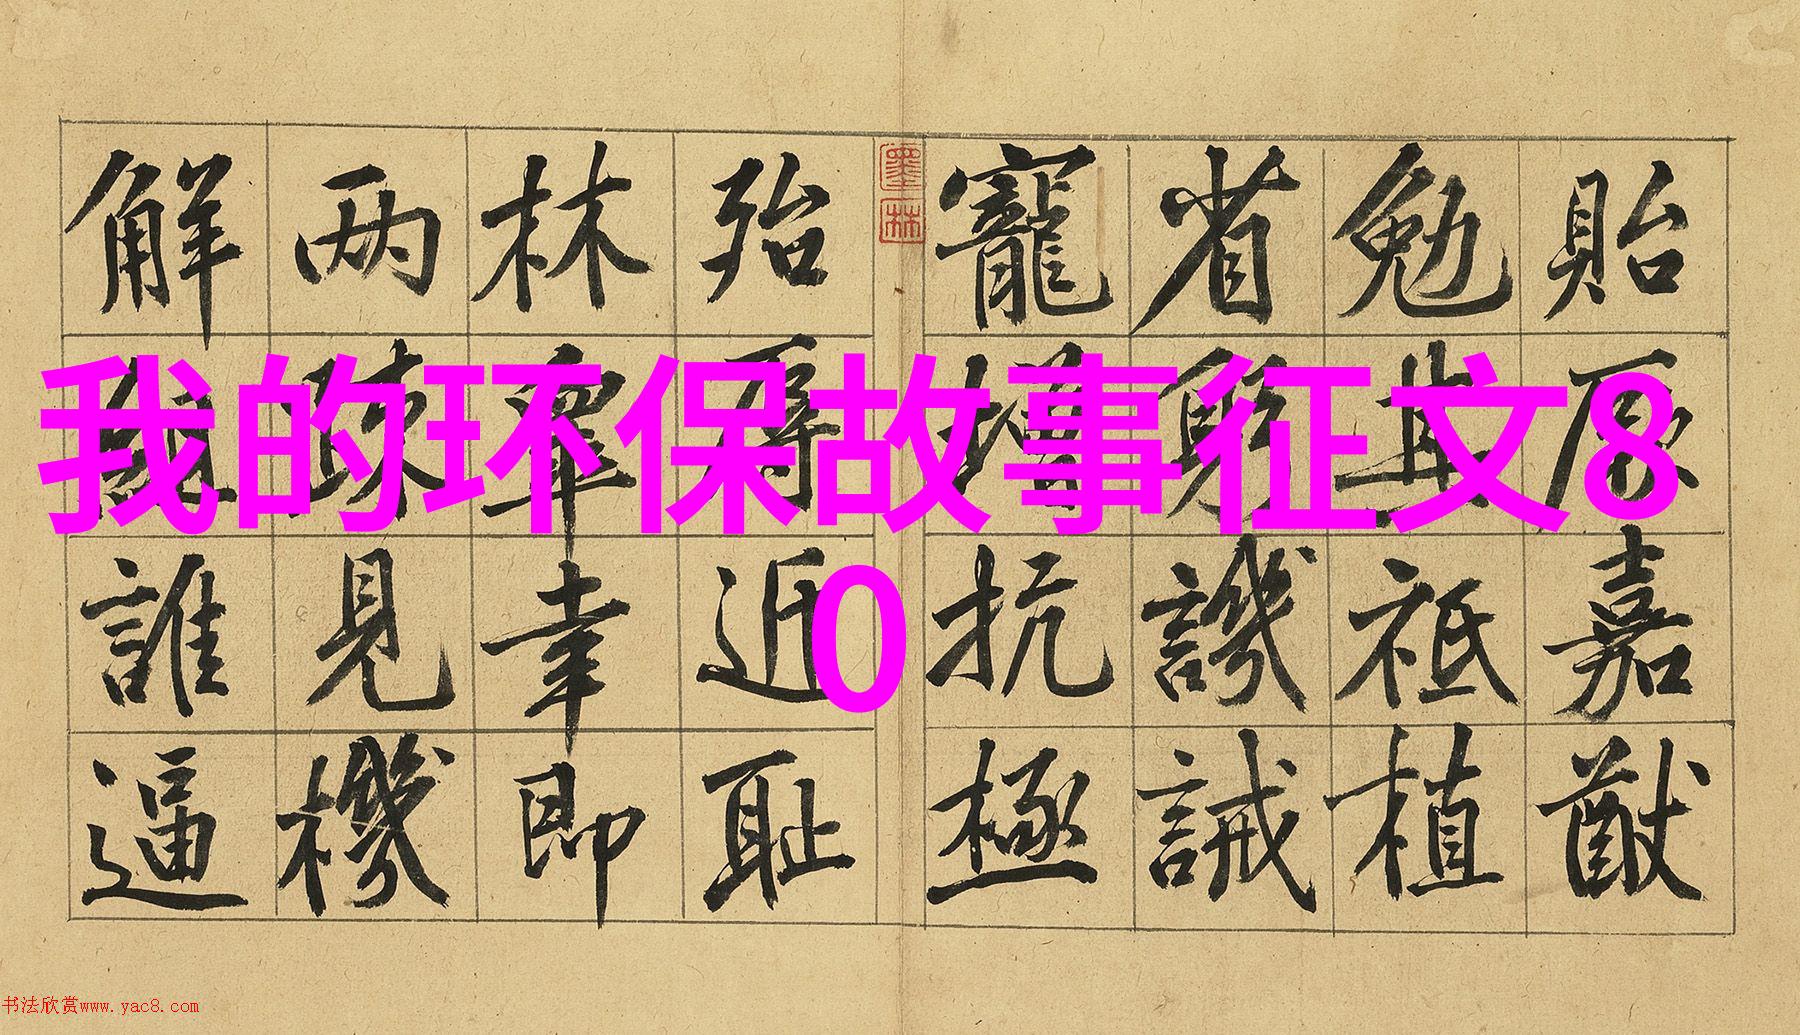 我的环保故事征文8
0
貽嘉猷
勉其祗植
省躬譏誡
寵增抗極
墨林
殆辱近耻
林皋幸即
两見機
解誰逼
书法欣赏www.yac8.com